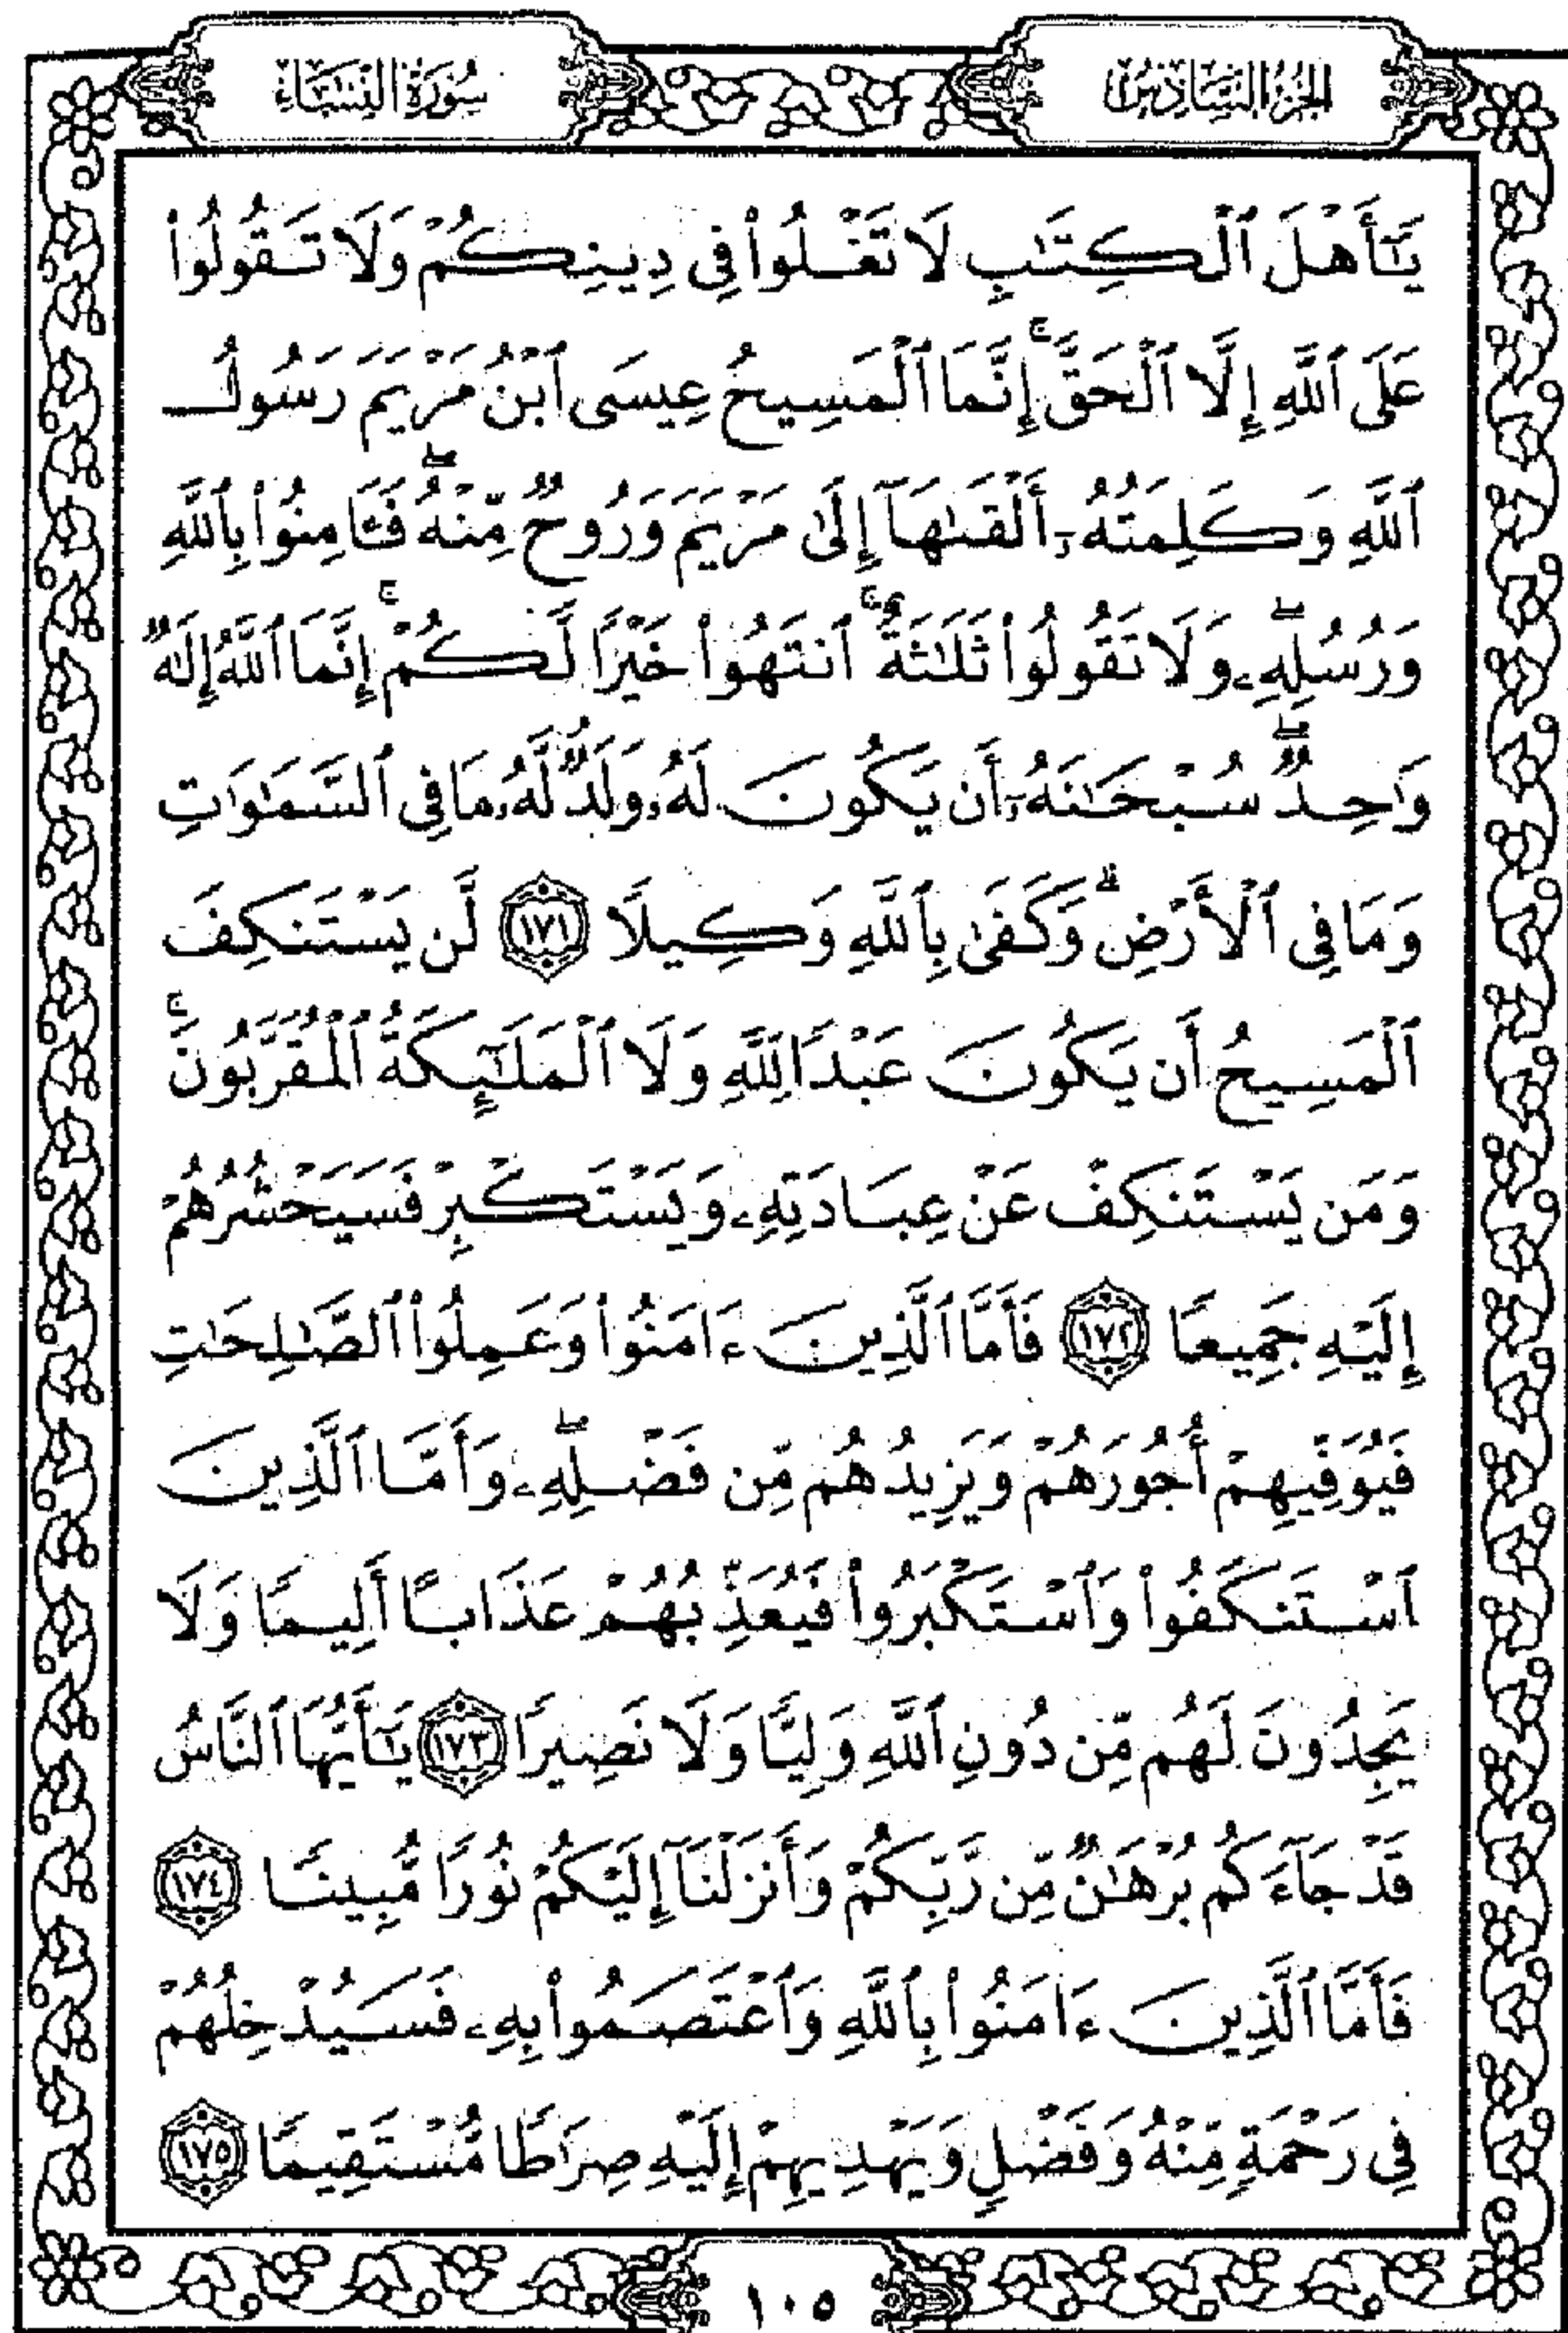 الجزء السادس
سورة النساء
يَـٰٓأَهْلَ ٱلْكِتَـٰبِ لَا تَغْلُوا۟ فِى دِينِكُمْ وَلَا تَقُولُوا۟
عَلَى ٱللَّهِ إِلَّا ٱلْحَقَّ ۚ إِنَّمَا ٱلْمَسِيحُ عِيسَى ٱبْنُ مَرْيَمَ رَسُولُ
ٱللَّهِ وَكَلِمَتُهُۥٓ أَلْقَىٰهَآ إِلَىٰ مَرْيَمَ وَرُوحٌ مِّنْهُ ۖ فَـَٔامِنُوا۟ بِٱللَّهِ
وَرُسُلِهِۦ ۖ وَلَا تَقُولُوا۟ ثَلَـٰثَةٌ ۚ ٱنتَهُوا۟ خَيْرًا لَّكُمْ ۚ إِنَّمَا ٱللَّهُ إِلَـٰهٌ
وَٰحِدٌ ۖ سُبْحَـٰنَهُۥٓ أَن يَكُونَ لَهُۥ وَلَدٌ ۘ لَّهُۥ مَا فِى ٱلسَّمَـٰوَٰتِ
وَمَا فِى ٱلْأَرْضِ ۗ وَكَفَىٰ بِٱللَّهِ وَكِيلًا ١٧١ لَّن يَسْتَنكِفَ
ٱلْمَسِيحُ أَن يَكُونَ عَبْدًا لِّلَّهِ وَلَا ٱلْمَلَـٰٓئِكَةُ ٱلْمُقَرَّبُونَ ۚ
وَمَن يَسْتَنكِفْ عَنْ عِبَادَتِهِۦ وَيَسْتَكْبِرْ فَسَيَحْشُرُهُمْ
إِلَيْهِ جَمِيعًا ١٧٢ فَأَمَّا ٱلَّذِينَ ءَامَنُوا۟ وَعَمِلُوا۟ ٱلصَّـٰلِحَـٰتِ
فَيُوَفِّيهِمْ أُجُورَهُمْ وَيَزِيدُهُم مِّن فَضْلِهِۦ ۖ وَأَمَّا ٱلَّذِينَ
ٱسْتَنكَفُوا۟ وَٱسْتَكْبَرُوا۟ فَيُعَذِّبُهُمْ عَذَابًا أَلِيمًا وَلَا
يَجِدُونَ لَهُم مِّن دُونِ ٱللَّهِ وَلِيًّا وَلَا نَصِيرًا ١٧٣ يَـٰٓأَيُّهَا ٱلنَّاسُ
قَدْ جَآءَكُم بُرْهَـٰنٌ مِّن رَّبِّكُمْ وَأَنزَلْنَآ إِلَيْكُمْ نُورًا مُّبِينًا ١٧٤
فَأَمَّا ٱلَّذِينَ ءَامَنُوا۟ بِٱللَّهِ وَٱعْتَصَمُوا۟ بِهِۦ فَسَيُدْخِلُهُمْ
فِى رَحْمَةٍ مِّنْهُ وَفَضْلٍ وَيَهْدِيهِمْ إِلَيْهِ صِرَٰطًا مُّسْتَقِيمًا ١٧٥
١٠٥